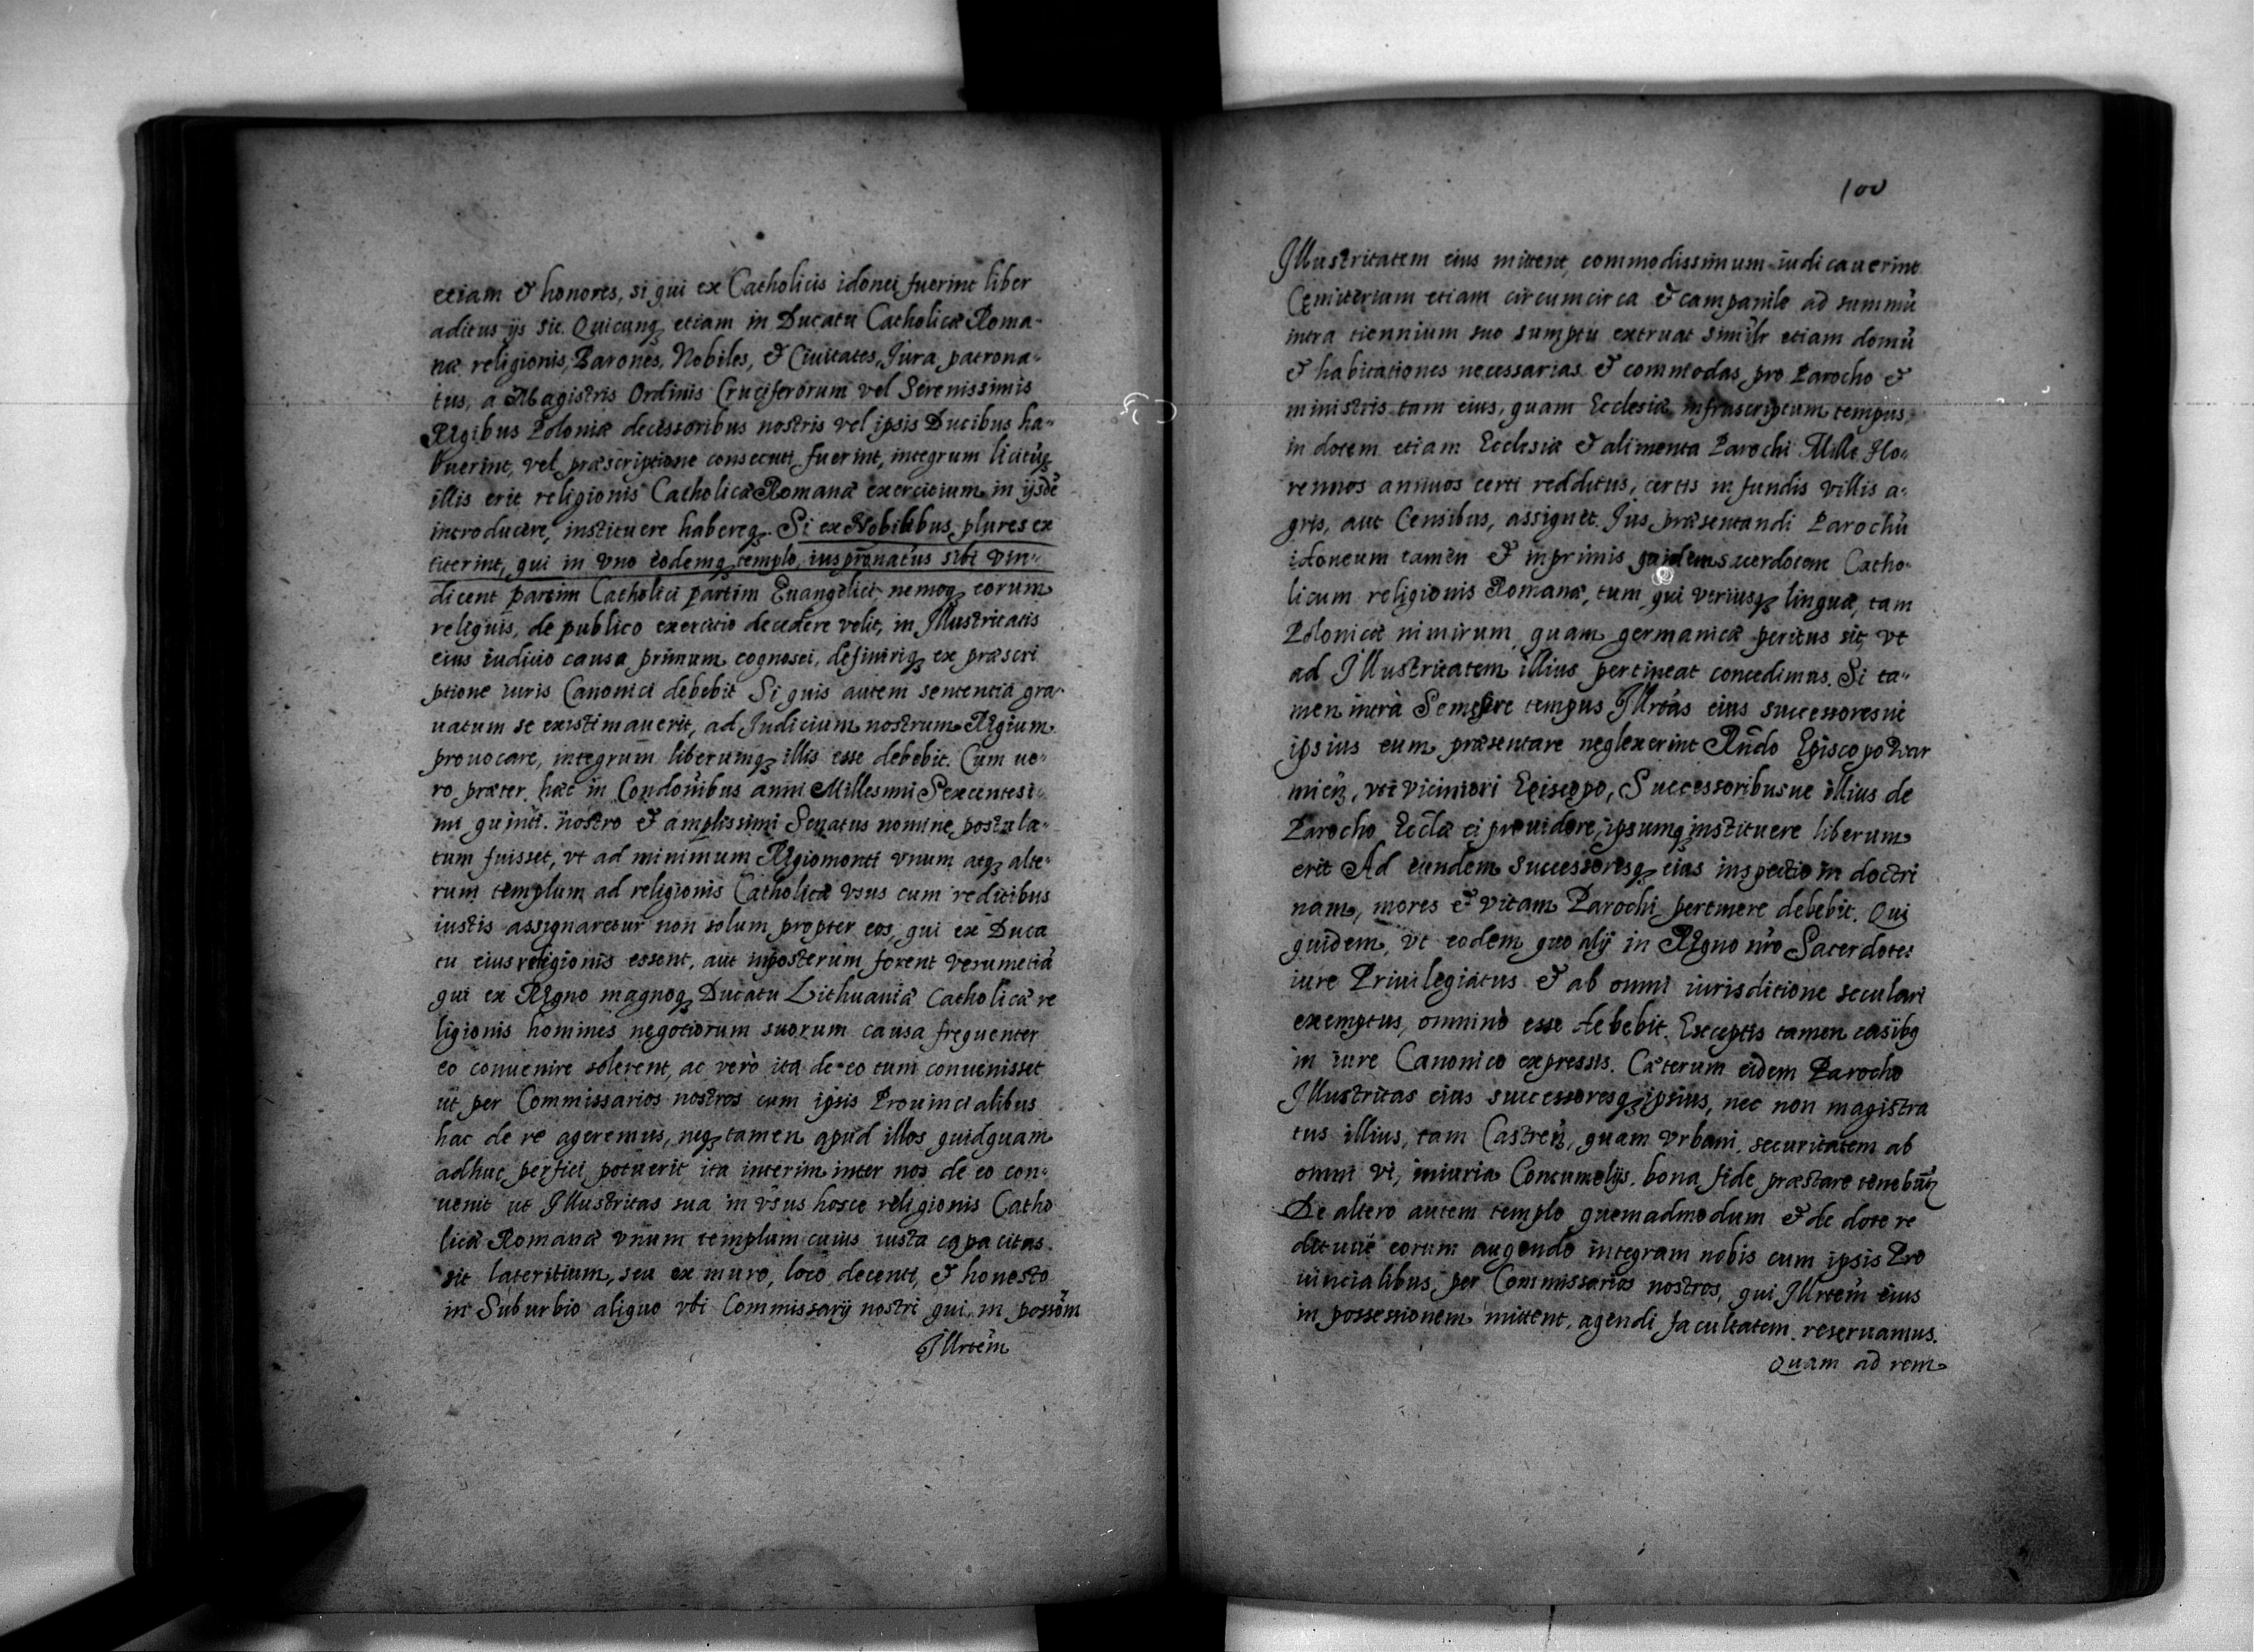 etiam & honores, si qui ex Catholicis idonei fuerint liber
aditus ijs sit. Quicunq; etiam in Ducatu Catholicæ Roma-
næ religionis, Barones, Nobiles, & Ciuitates, Jura patrona-
tus, a Magistris Ordinis Cruciferorum vel Serenissimis
Regibus Poloniæ decessoribus nostris vel ipsis Ducibus ha-
buerint, vel præscriptione consecuti fuerint, integrum licitūq;
illis erit religionis Catholicæ Romanæ exercitium in ijsdē
introducere, instituere habereq;. Si ex Nobilibus plures ex
titerint, qui in vno eodemq; templo, ius prōnatus sibi vin-
dicent partim Catholici partim Euangelici, nemoq; eorum
reliquis, de publico exercitio decedere velit, in Illustritatis
eius iudicio causa primum cognosci, definiriq; ex præscri
ptione iuris Canonici debebit Si quis autem sententia gra-
uatum se existimauerit, ad Judicium nostrum Regium
prouocare, integrum liberumq; illis esse debebit. Cum ue-
ro præter hæc in Condonibus anni Millesimi Sexcentesi-
mi quinti. nostro & amplissimi Senatus nomine postula-
tum fuisset, vt ad minimum Regiomonti vnum atq; alte-
rum templum ad religionis Catholicæ vsus cum reditibus
iustis assignaretur non solum propter eos, qui ex Duca
tu eius religionis essent, aut inposterum forent verumetiā
qui ex Regno magnoq; Ducatu Lithuaniæ Catholicæ re
ligionis homines negotiorum suorum causa frequenter
eo conuenire solerent, ac verò ita de eo tum conuenisset
ut per Commissarios nostros cum ipsis Prouincialibus
hac de re ageremus, neq; tamen apud illos quidquam
adhuc perfici potuerit ita interim inter nos de eo con-
uenit ut Illustritas sua in vsus hosce religionis Catho
licæ Romanæ vnum templum cuius iusta capacitas
sit lateritium, seu ex muro, loco decenti, & honesto
in Suburbio aliquo vbi Commissarij nostri qui in possōm
Illrtem̄
100
Illustritatem eius mittent commodissimum iudicauerint
Cęmiterium etiam circumcirca & campanile ad summū
intra tiennium suo sumptu extruat simil̄r etiam domū
& habitationes necessarias & commodas pro Parocho &
ministris tam eius, quam Ecclesiæ infrascriptum tempus,
in dotem etiam Ecclesiæ & alimenta Parochi Mille Flo-
rennos annuos certi redditus, certis in fundis villis a-
gris, aut Censibus, assignet. Jus præsentandi Parochū
idoneum tamen & inprimis quidem sacerdotem Catho-
licum religionis Romanæ, tum qui vtriusq; linguæ, tam
Polonicæ nimirum quam germanicæ peritus sit, vt
ad Illustritatem illius pertineat concedimus. Si ta-
men intrà Semestre tempus Illrtas eius successoresue
ipsius eum præsentare neglexerint Rn̄do Episcopo War
mien̄, vti viciniori Episcopo, Successoribusue illius de
Parocho Eccl̄æ ei prouidere, ipsumq; instituere liberum
erit Ad eundem successoresq; eius inspectio in doctri
nam, mores & vitam Parochi pertinere debebit. Qui
quidem, vt eodem quo alij in Regno nr̄o Sacerdotes
iure Priuilegiatus & ab omni iurisditione seculari
exemptus, omninò esse debebit. Exceptis tamen casibq
in iure Canonico expressis. Cæterum eidem Parocho
Illustritas eius successoresq; ipsius, nec non magistra
tus illius, tam Castren̄, quam Vrbani, securitatem ab
omni vi, iniuria Contumelijs. bona fide præstare tenebūt
De altero autem templo quemadmodum & de dote re
dituue eorum augendo integram nobis cum ipsis Pro
uincialibus, per Commissarios nostros, qui Illrtem̄ eius
in possessionem mittent, agendi facultatem reseruamus.
Quam ad rem